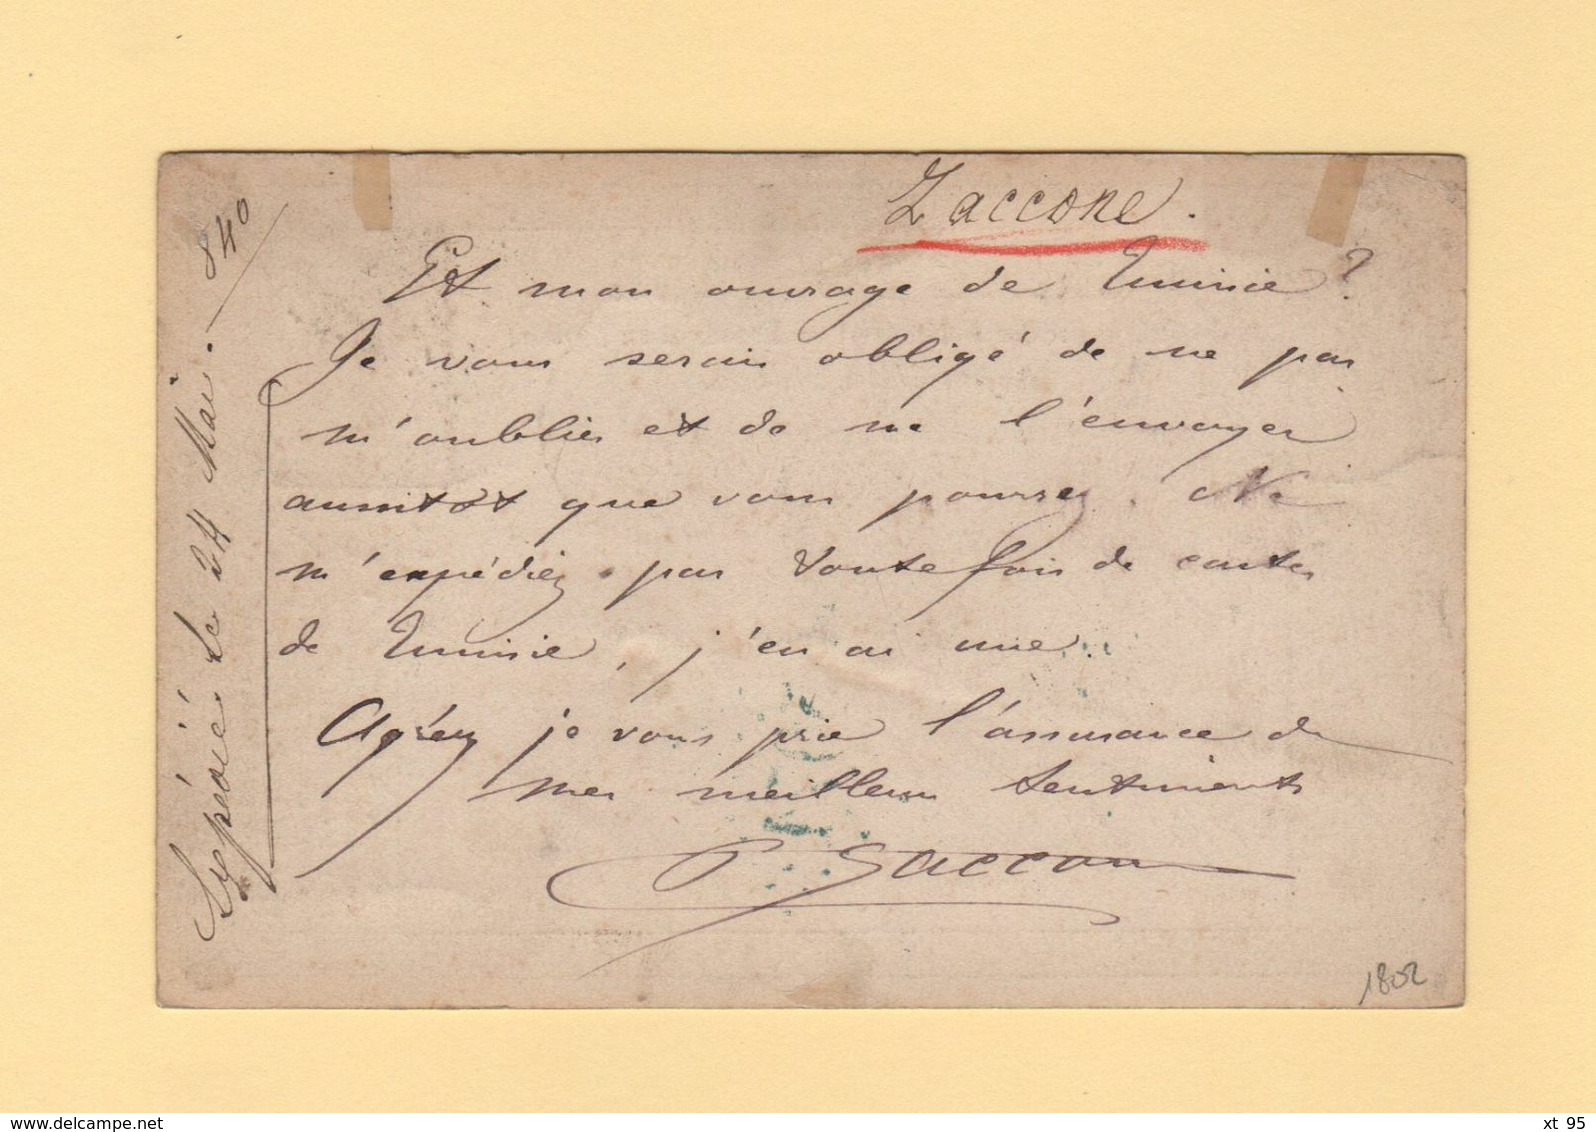 Zaccone.
Et mon ouvrage de Tunisie ?
Je vous serais obligé de ne pas
m'oublier et de me l'envoyer
aussitôt que vous pourrez. Ne
m'expédiez pas toutefois de cartes
de Tunisie, j'en ai une.
Agréez je vous prie l'assurance de
mes meilleurs sentiments
P Zaccone
Expédié le 24 Mai. 84⁰
1802
www.delcampe.net
xt_95